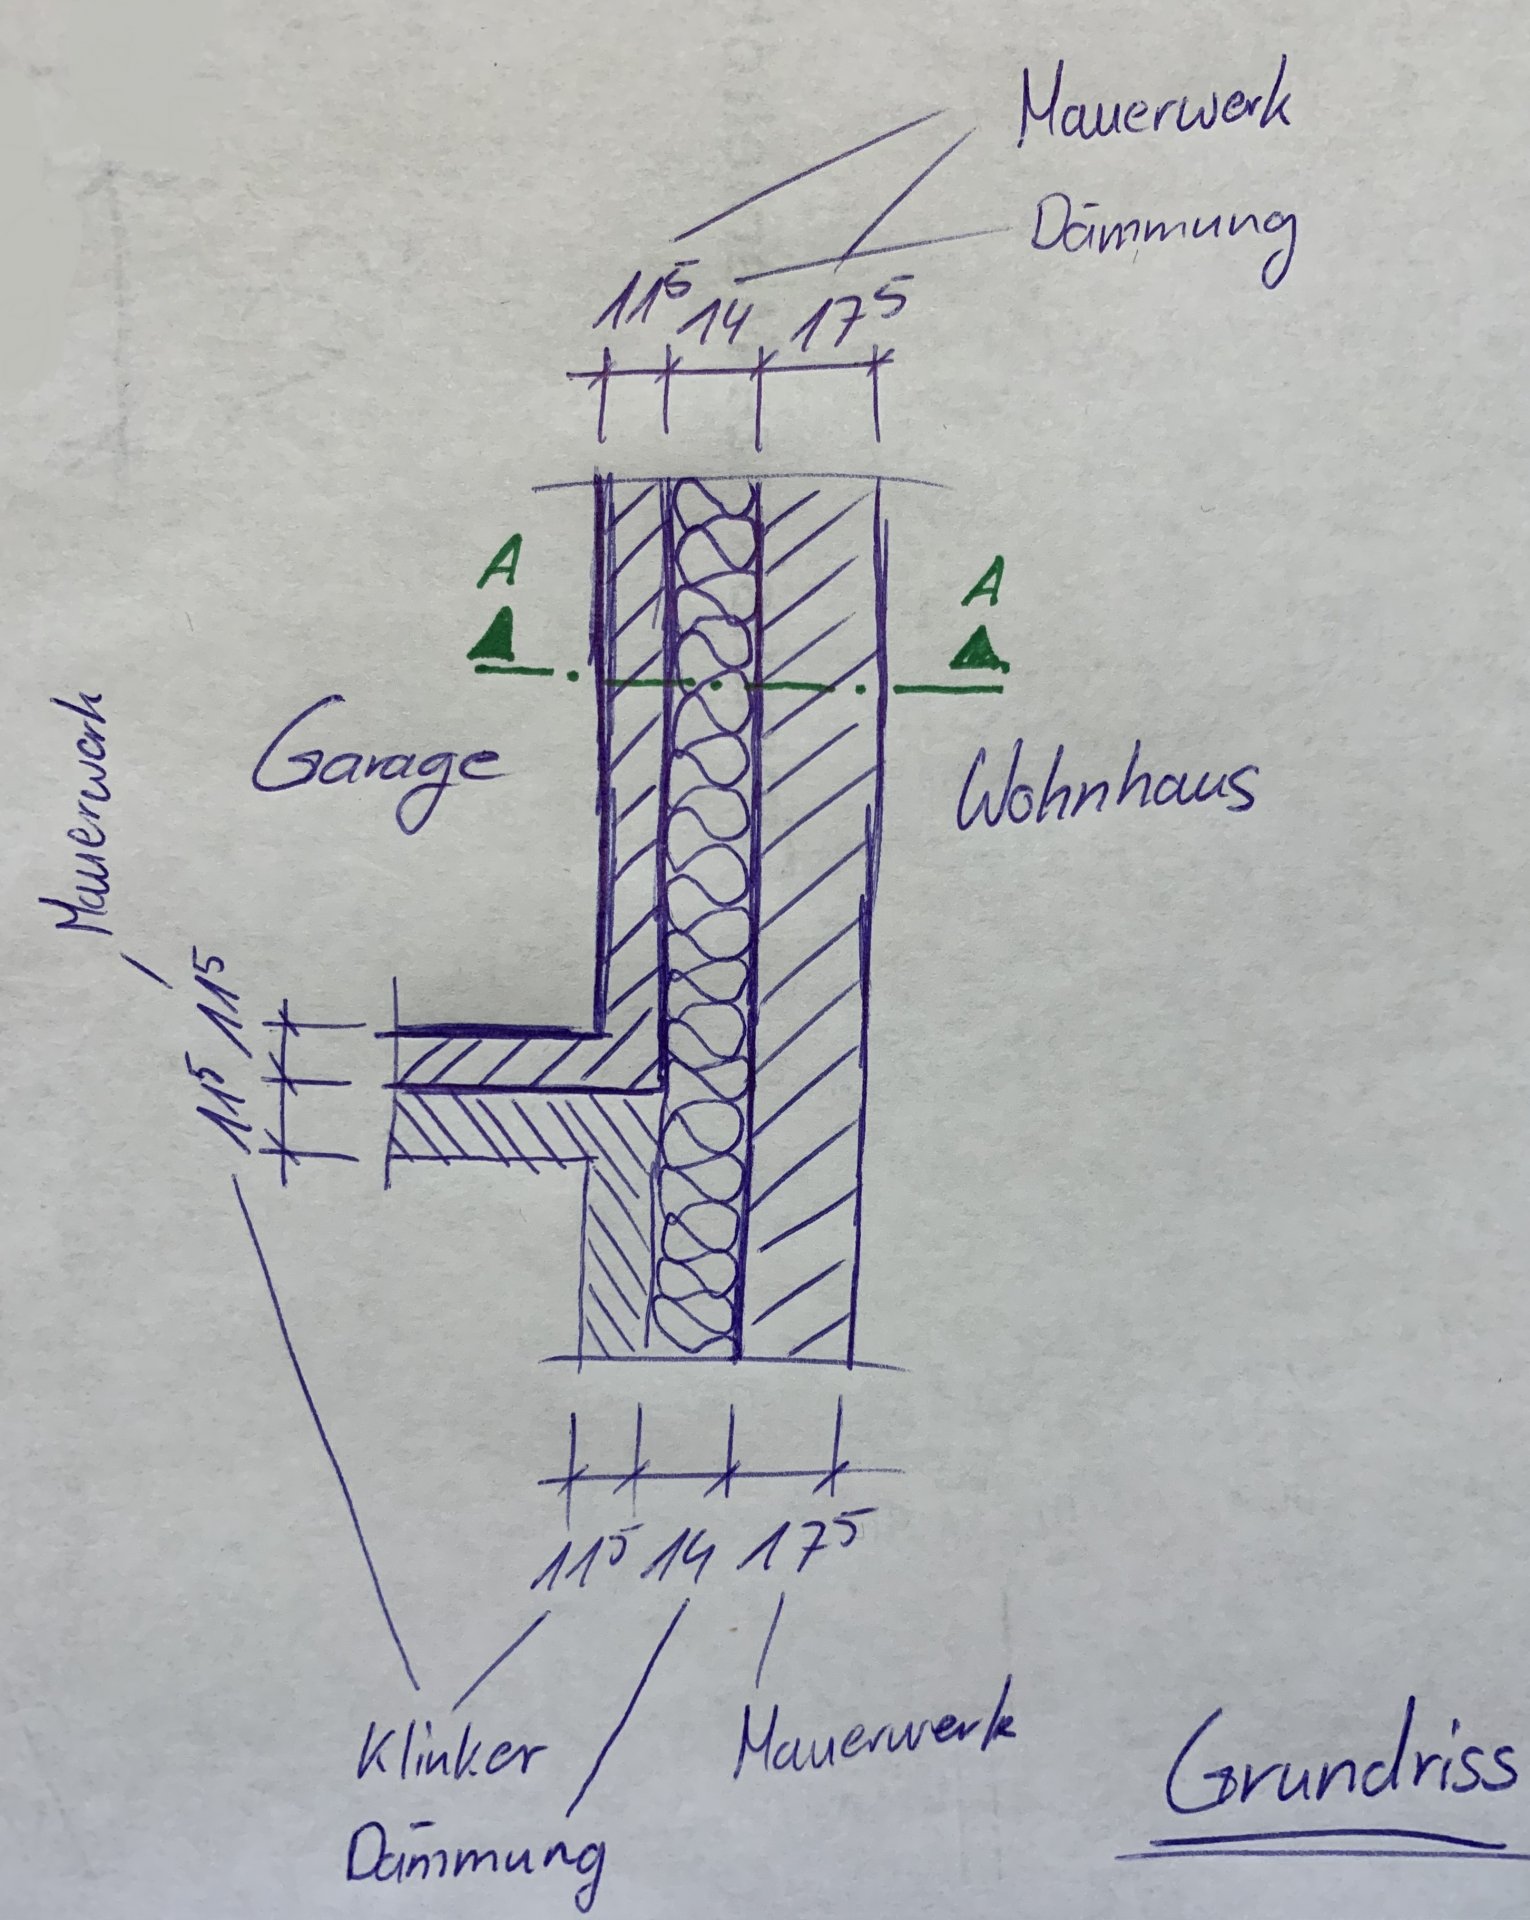 Mauerwerk
Dämmung
11⁵ 14 17⁵
A A
Garage
Wohnhaus
Mauerwerk
11⁵ 11⁵
11⁵ 14 17⁵
Klinker
Mauerwerk
Dämmung
Grundriss